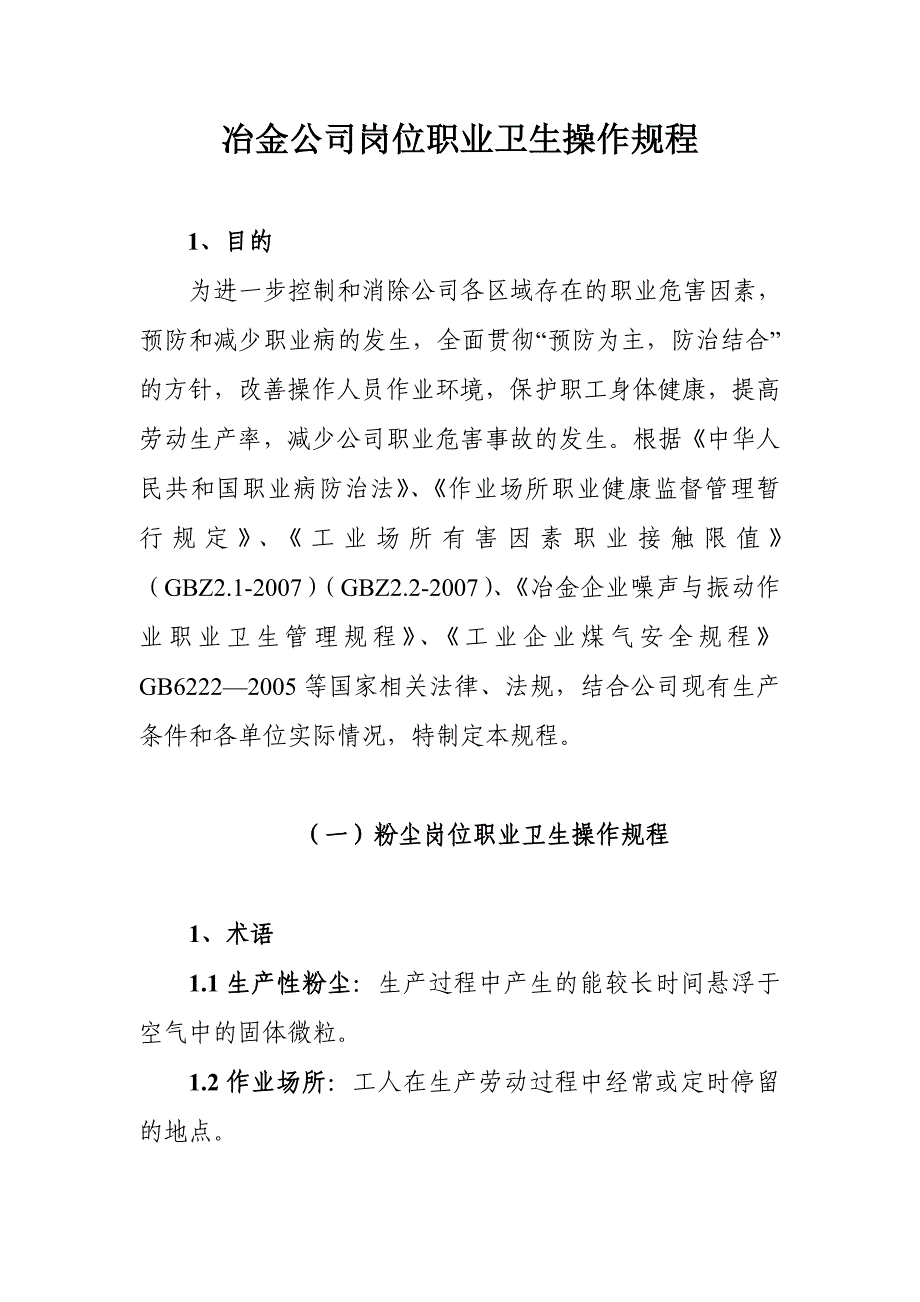 冶金公司岗位职业卫生操作规程
1、目的
为进一步控制和消除公司各区域存在的职业危害因素，
预防和减少职业病的发生，全面贯彻“预防为主，防治结合”
的方针，改善操作人员作业环境，保护职工身体健康，提高
劳动生产率，减少公司职业危害事故的发生。根据《中华人
民共和国职业病防治法》、《作业场所职业健康监督管理暂
行规定》、《工业场所有害因素职业接触限值》
（GBZ2.1-2007）（GBZ2.2-2007）、《冶金企业噪声与振动作
业职业卫生管理规程》、《工业企业煤气安全规程》
GB6222—2005 等国家相关法律、法规，结合公司现有生产
条件和各单位实际情况，特制定本规程。
（一）粉尘岗位职业卫生操作规程
1、术语
1.1 生产性粉尘：生产过程中产生的能较长时间悬浮于
空气中的固体微粒。
1.2 作业场所：工人在生产劳动过程中经常或定时停留
的地点。